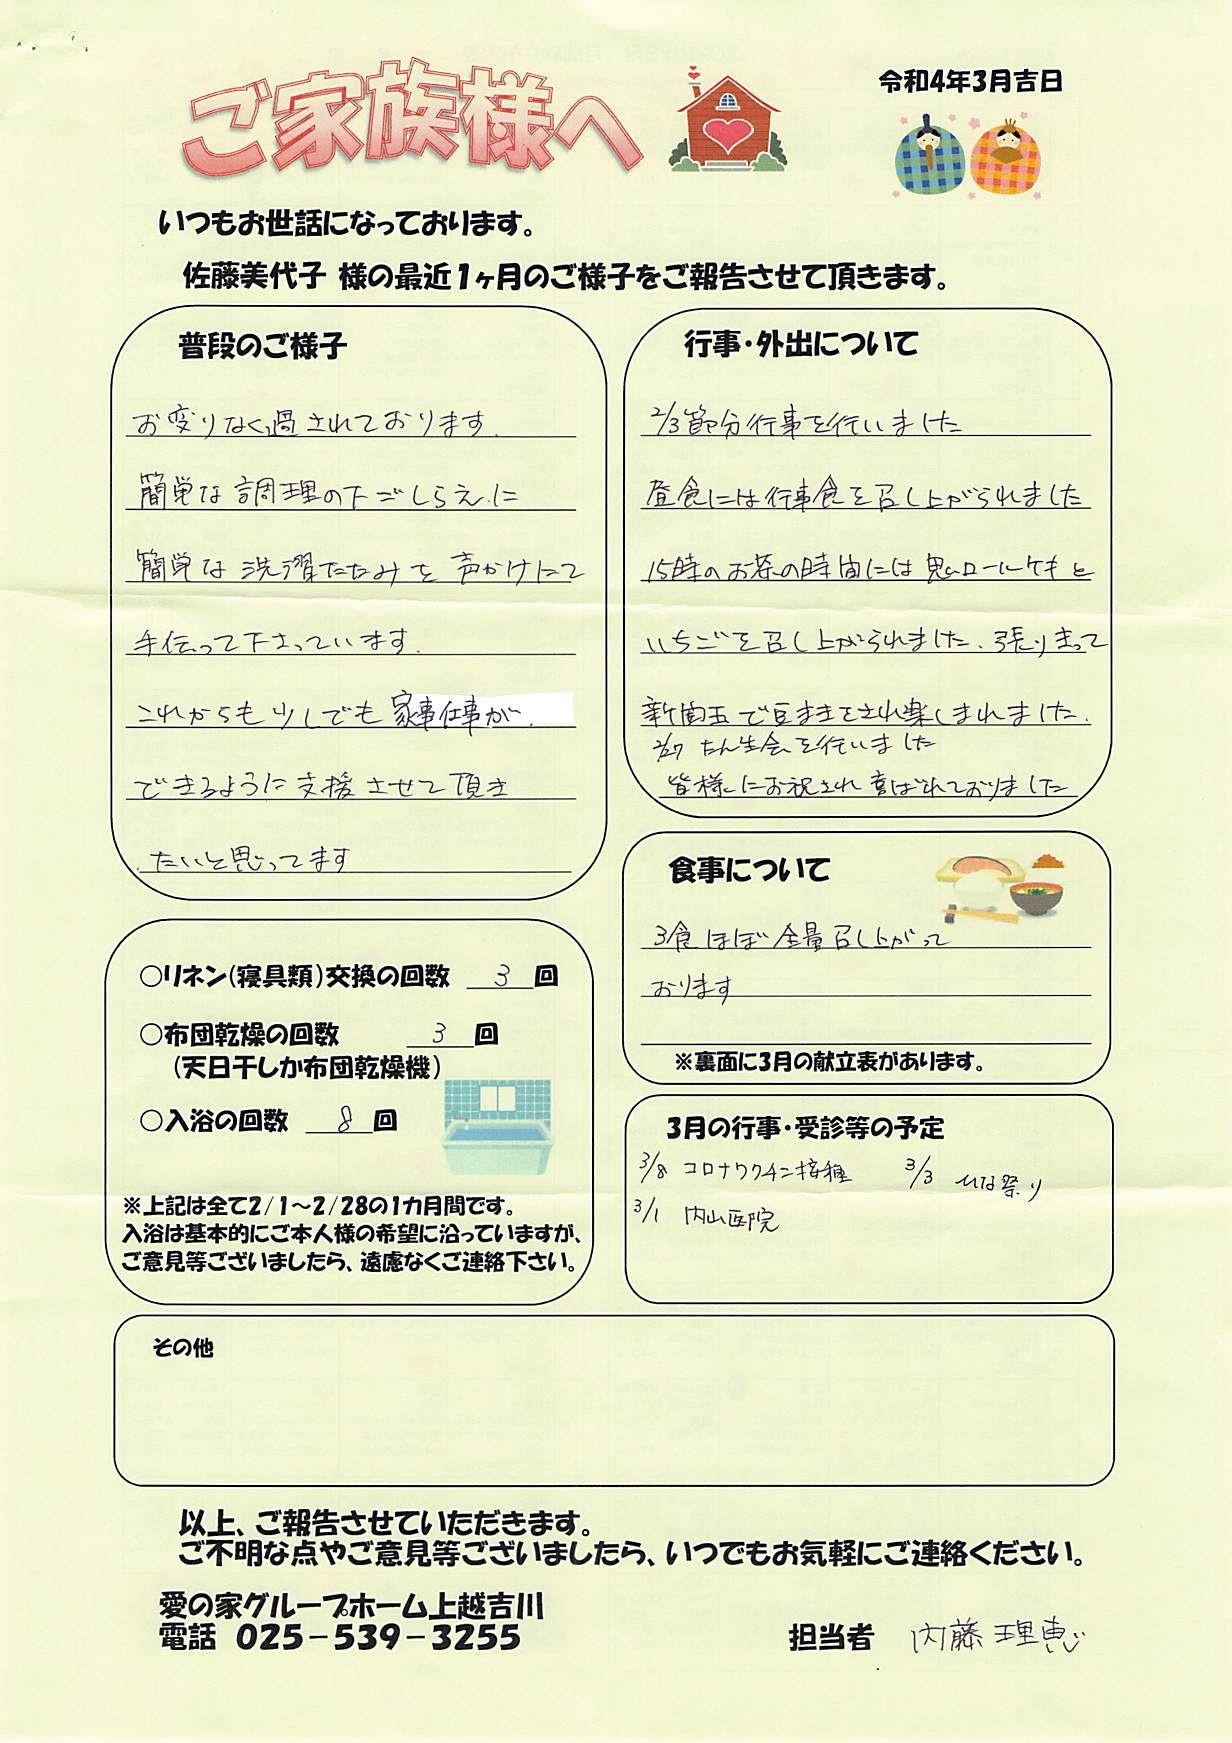 ご家族様へ
令和4年3月吉日
いつもお世話になっております。
佐藤美代子 様の最近1ヶ月のご様子をご報告させて頂きます。
普段のご様子
お変りなく過されております.
簡単な調理の下ごしらえに
簡単な洗濯たたみを声かけにて
手伝って下さっています.
これからも少しでも家事仕事が
できるように支援させて頂き
たいと思ってます
行事・外出について
2/3節分行事を行いました
昼食には行事食を召し上がられました
15時のお茶の時間には鬼ロールケーキと
いちごを召し上がられました.張りきって
新聞玉で豆まきをされ楽しまれました.
2/27 たん生会を行いました
皆様にお祝され喜ばれておりました
食事について
3食ほぼ全量召し上がって
おります
※裏面に3月の献立表があります。
○リネン(寝具類)交換の回数 3 回
○布団乾燥の回数 3 回
(天日干しか布団乾燥機)
○入浴の回数 8 回
※上記は全て2/1～2/28の1カ月間です。
入浴は基本的にご本人様の希望に沿っていますが、
ご意見等ございましたら、遠慮なくご連絡下さい。
3月の行事・受診等の予定
3/8 コロナワクチン接種 3/3 ひな祭り
3/1 内山医院
その他
以上、ご報告させていただきます。
ご不明な点やご意見等ございましたら、いつでもお気軽にご連絡ください。
愛の家グループホーム上越吉川
電話 025-539-3255
担当者 内藤 理恵